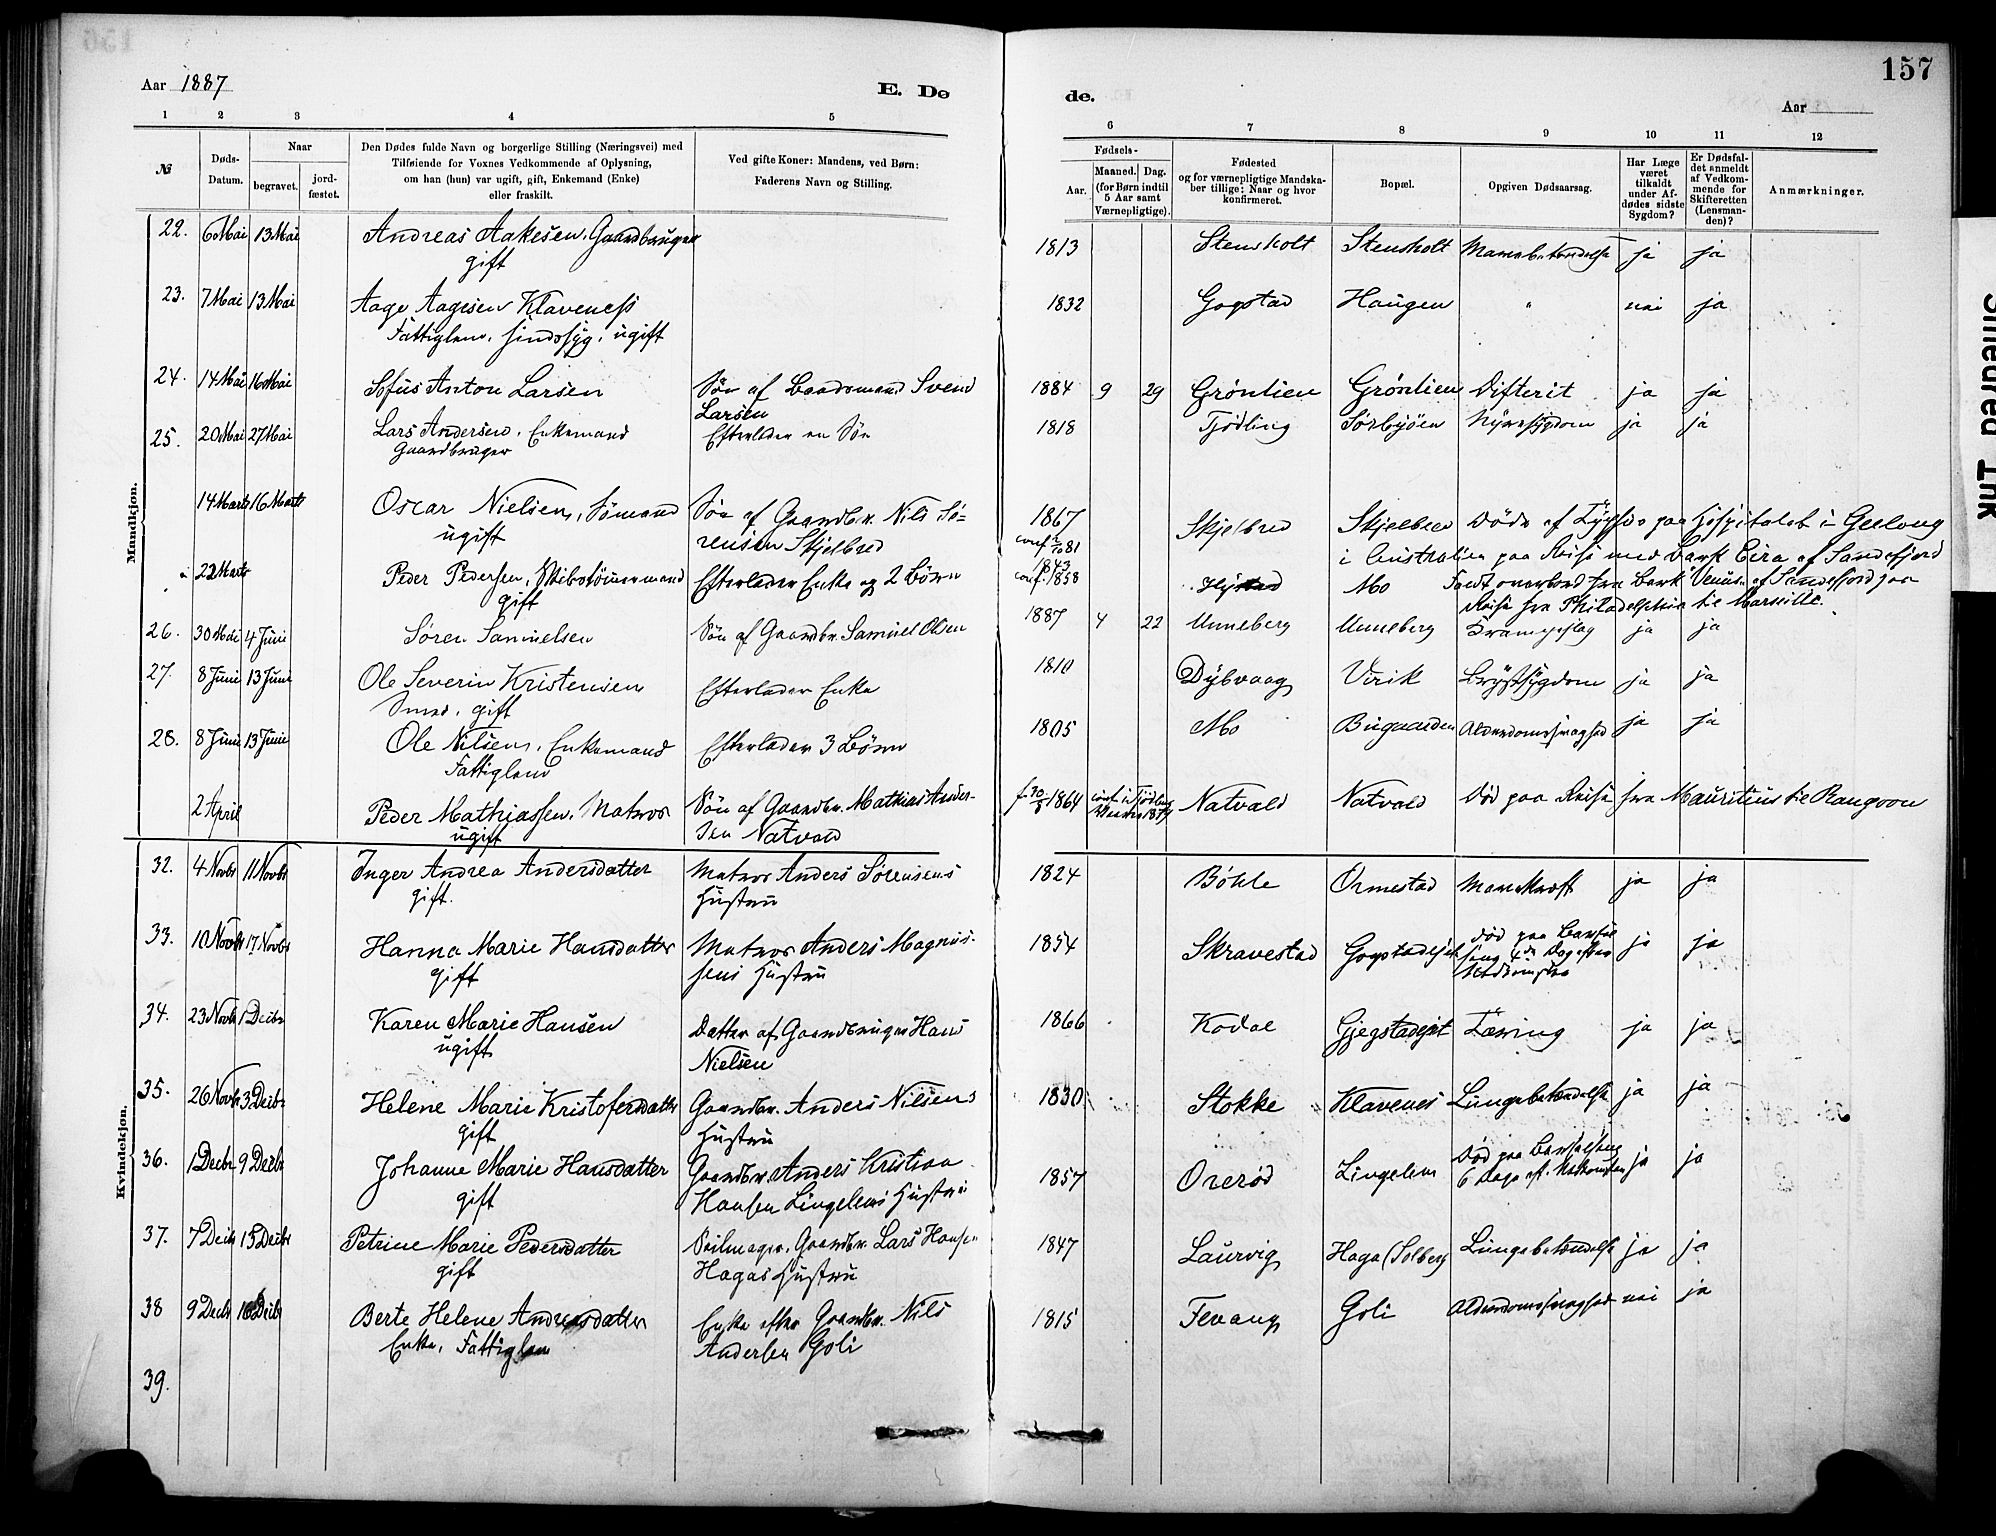 157
Aar 1887
E. Dø
de.
Aar
1 2 3 4 5
6 7 8 9 10 11 12
№
Døds-
Datum.
Naar
begravet.
jord-
fæstet.
Den Dødes fulde Navn og borgerlige Stilling (Næringsvei) med
Tilføiende for Voxnes Vedkommende af Oplysning,
om han (hun) var ugift, gift, Enkemand (Enke)
eller fraskilt.
Ved gifte Koner: Mandens, ved Børn:
Faderens Navn og Stilling.
Fødsels-
Aar.
Maaned. Dag.
(for Børn indtil
5 Aar samt
Værnepligtige).
Fødested
og for værnepligtige Mandska-
ber tillige: Naar og hvor
konfirmeret.
Bopæl.
Opgiven Dødsaarsag.
Har Læge
været
tilkaldt
under Af-
dødes sidste
Sygdom?
Er Dødsfal-
det anmeldt
af Vedkom-
mende for
Skifteretten
(Lensman-
den)?
Anmærkninger.
Mandkjøn.
22. 6 Mai 13 Mai Andreas Aakesen, Gaardbruger 1813 Stensholt Stensholt Mavebetændelse ja ja
gift
23. 7 Mai 13 Mai Aage Aagesen Klaveness 1832 Gogstad Haugen " nei ja
Fattiglem, sindssyg, ugift
24. 14 Mai 16 Mai Sofus Anton Larsen Søn af Baadsmand Svend 1884 9 29 Grönlien Grönlien Difterit ja ja
Larsen
25. 20 Mai 27 Mai Lars Andersen, Enkemand Efterlader en Søn 1818 Tjödling Sörbyöen Nyresygdom ja ja
Gaardbruger
14 Marts 16 Marts Oscar Nielsen, Sömand Søn af Gaardbr. Nils Sö- 1867 Skjelbred Skjelbred Döde af Tyfus paa Hospitalet i Geelong
ugift rensen Skjelbred conf. 2/10 81 i Australien paa Reise med Bark Eira af Sandefjord
22 Marts Peder Pedersen, Skibstömmermand Efterlader Enke og 2 Börn 1843 conf. 1858 Mo Faldt overbord fra Bark Venus af Sandefjord paa
gift Reise fra Philadelphia til Marseille.
26. 30 Mai 4 Juni Sören Samuelsen Søn af Gaardbr. Samuel Olsen 1887 4 22 Unneberg Unneberg Krampeslag ja ja
27. 8 Juni 13 Juni Ole Severin Kristensen Efterlader Enke 1810 Dybvaag Virik Brystsygdom ja ja
Smed, gift
28. 8 Juni 13 Juni Ole Nilsen, Enkemand Efterlader 3 Börn 1805 Mo Bugaarden Alderdomssvaghed ja ja
Fattiglem
2 April Peder Mathiassen, Matros Søn af Gaardbr. Mathias Ander- f. 30/8 1864 conf. i Tjödling 1879 Natvald Natvald Död paa Reise fra Mauritius til Rangoon
ugift sen Natvald
Kvindekjøn.
32. 4 Novbr 11 Novbr Inger Andrea Andersdatter Matros Anders Sørensens 1824 Böhle Ormestad Mavekræft ja ja
gift. Hustru
33. 10 Novbr 17 Novbr Hanna Marie Hansdatter Matros Anders Magnus- 1854 Skravestad Gogstadejet död paa Barsel ja ja
gift sens Hustru seng 4de Dag efter
Nedkomsten
34. 23 Novbr 1 Decbr Karen Marie Hansen Datter af Gaardbruger Hans 1866 Kodal Gjegstadejet Tæring ja ja
ugift Nielsen
35. 26 Novbr 3 Decbr Helene Marie Kristofersdatter Gaardbr. Anders Nilsens 1830 Stokke Klavenes Lungebetændelse ja ja
gift Hustru
36. 1 Decbr 9 Decbr Johanne Marie Hansdatter Gaardbr. Anders Kristian 1857 Overöd Lingelem Död paa Barselseng ja ja
gift Hansen Lingelems Hustru 6 Dage eft. Nedkomsten
37. 7 Decbr 15 Decbr Petrine Marie Pedersdatter Seilmager, Gaardbr. Lars Hansen 1847 Laurvig Haga (Solberg Lungebetændelse ja ja
gift Hagas Hustru
38 9 Decbr 16 Decbr Berte Helene Andreasdatter Enke efter Gaardbr. Nils 1815 Fevang Goli Alderdomssvaghed nei ja
Enke, Fattiglem Andersen Goli
39.